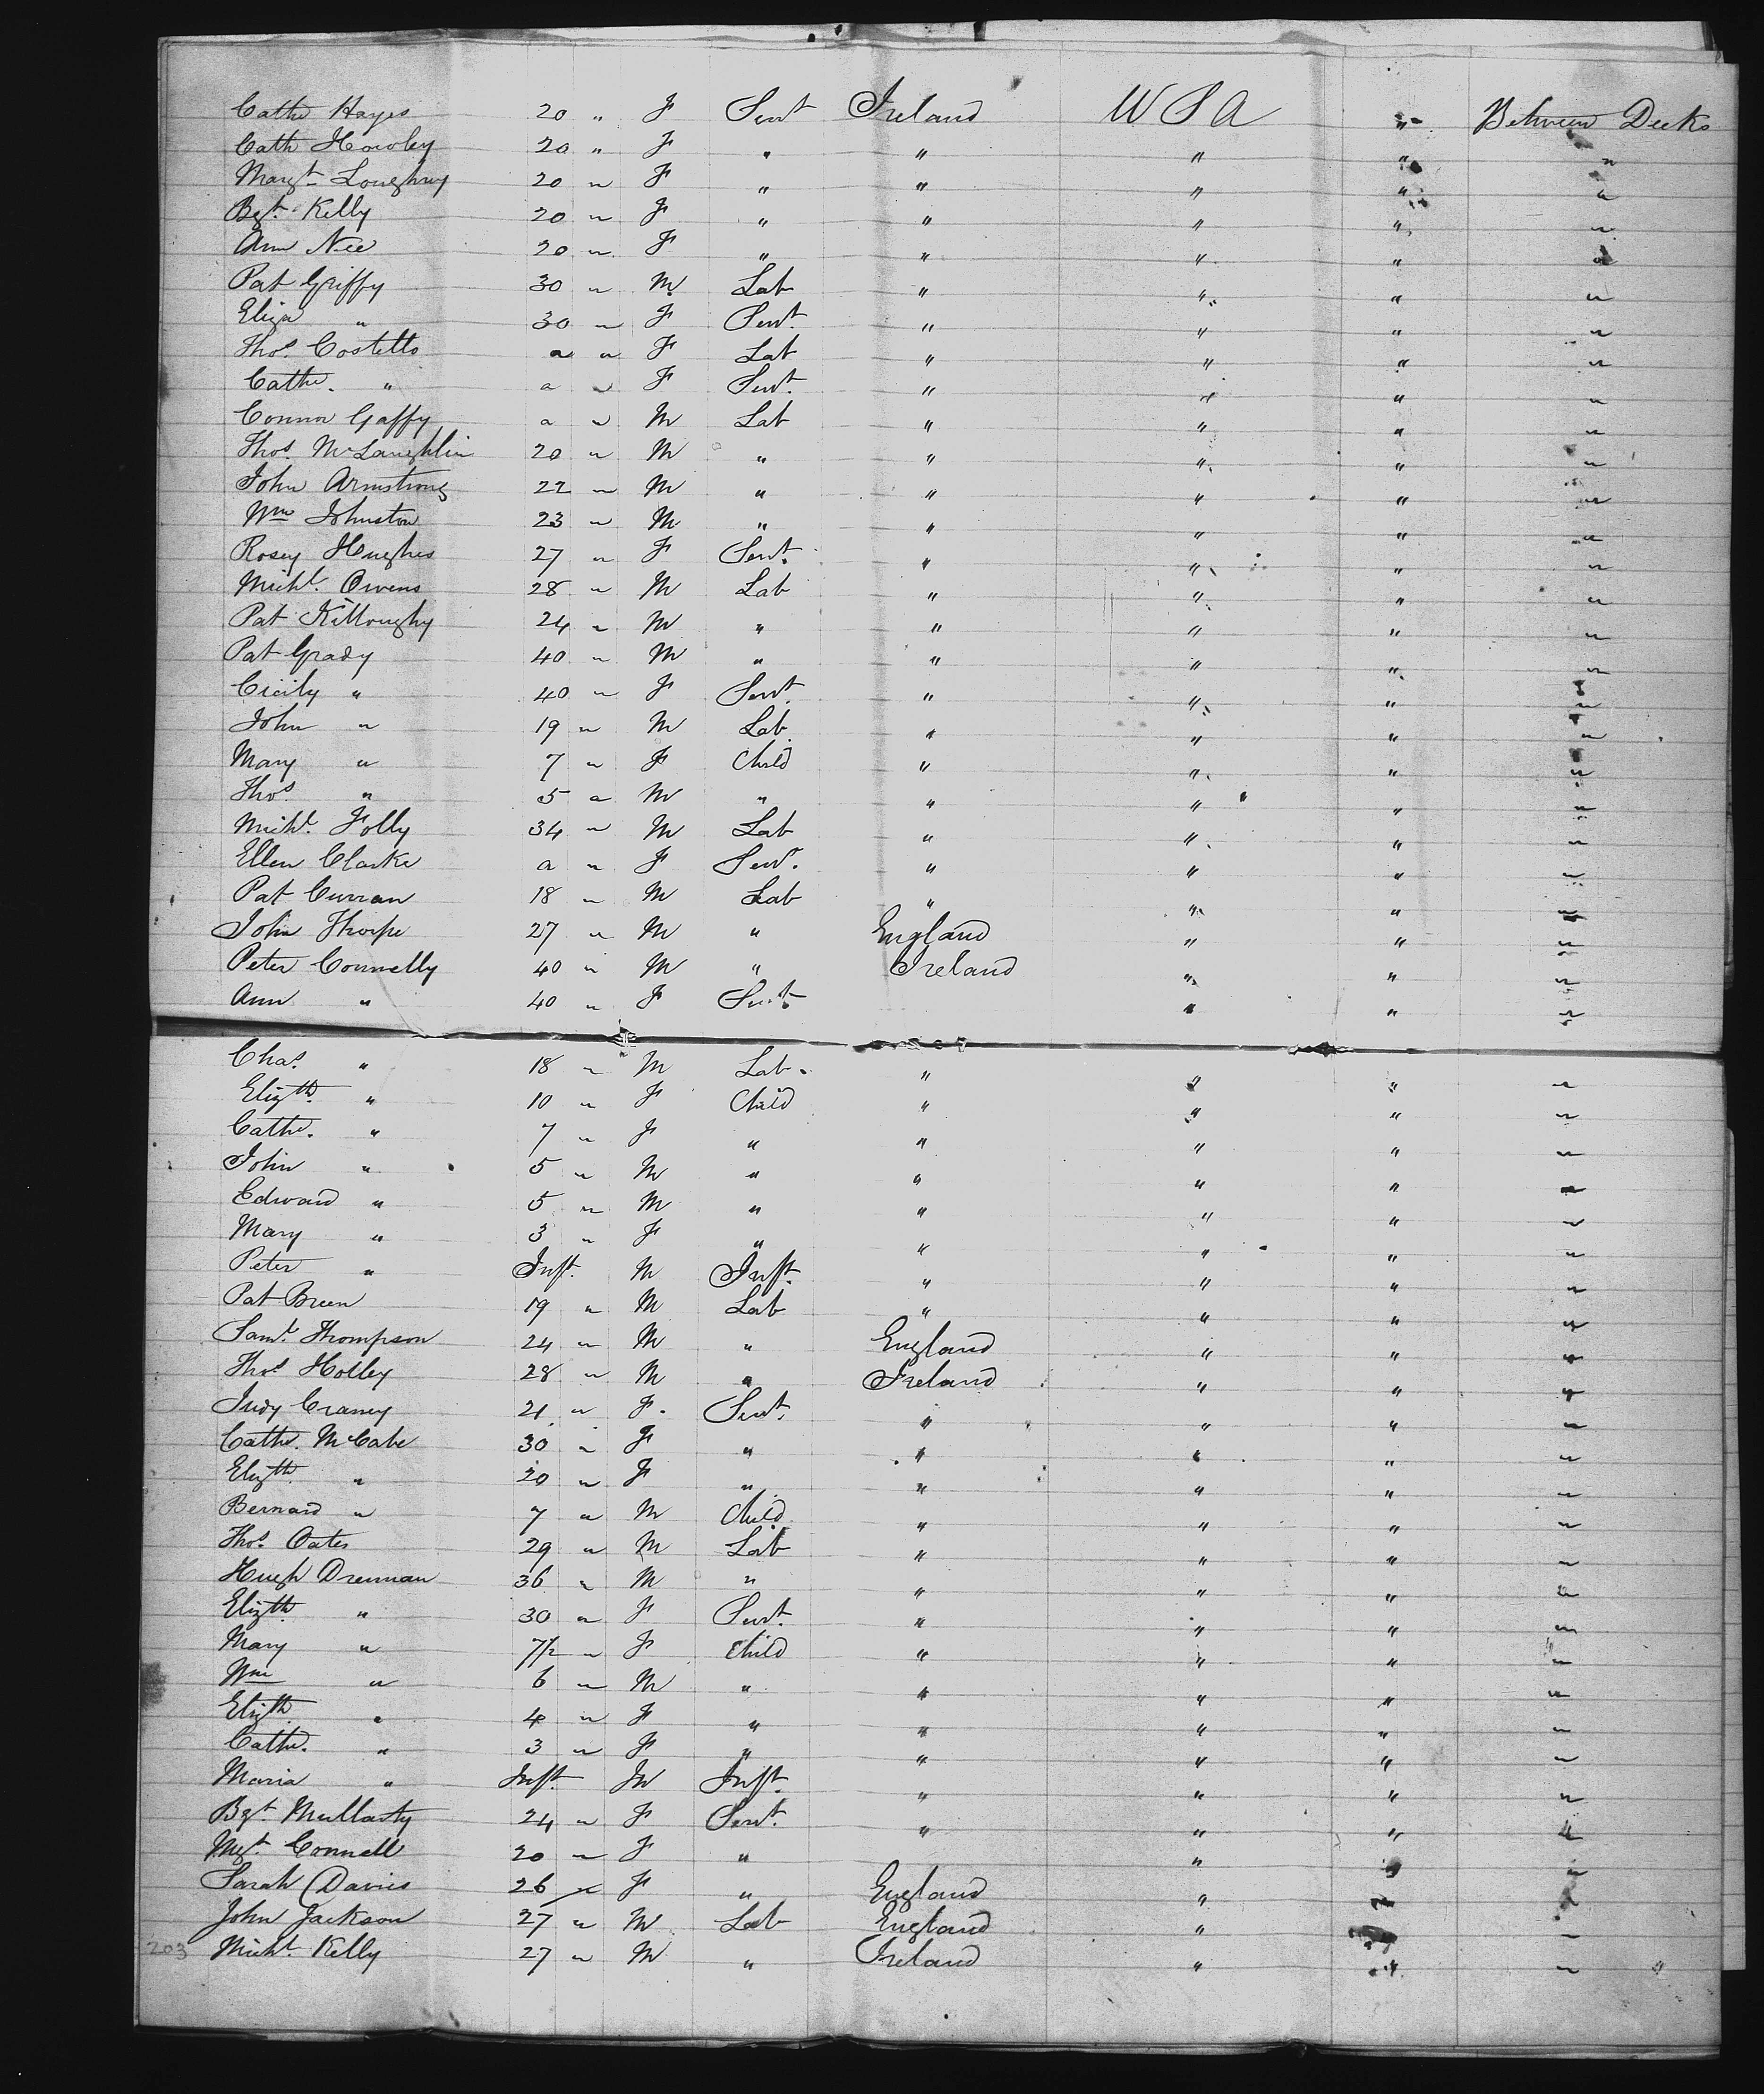 Cathe Hayes 20 " F Servt Ireland U S A " Between Decks
Cath Howley 20 " F " " " " "
Margt Loughny 20 " F " " " " "
Bgt Kelly 20 " F " " " " "
Ann Nee 20 " F " " " " "
Pat Griffy 30 " M Lab " " " "
Eliza " 30 " F Servt " " " "
Thos Costello a " F Lab " " " "
Cathe. " a " F Servt. " " " "
Connor Gaffy a " M Lab " " " "
Thos McLaughlin 20 " M " " " " "
John Armstrong 22 " M " " " " "
Wm Johnston 23 " M " " " " "
Rosey Hughes 27 " F Servt. " " " "
Michl. Owens 28 " M Lab " " " "
Pat Killoughy 24 " M " " " " "
Pat Grady 40 " M " " " " "
Cicily " 40 " F Servt. " " " "
John " 19 " M Lab " " " "
Mary " 7 " F Child " " " "
Thos " 5 " M " " " " "
Michl. Folly 34 " M Lab " " " "
Ellen Clarke a " F Servt. " " " "
Pat Curran 18 " M Lab " " " "
John Thorpe 27 " M " England " " "
Peter Connelly 40 " M " Ireland " " "
Ann " 40 " F Servt. " " "
Chas " 18 " M Lab. " " " "
Elizth " 10 " F Child " " " "
Cathe. " 7 " F " " " " "
John " 5 " M " " " " "
Edward " 5 " M " " " " "
Mary " 3 " F " " " " "
Peter " Inft. M Inft. " " " "
Pat Breen 19 " M Lab " " " "
Saml. Thompson 24 " M " England " " "
Thos Holley 28 " M " Ireland " " "
Judy Craney 21 " F. Servt. " " " "
Cathe. McCabe 30 " F " " " " "
Elizth " 20 " F " " " " "
Bernard " 7 " M Child " " " "
Thos. Oates 29 " M Lab " " " "
Hugh Drennan 36 " M " " " " "
Elizth " 30 " F Servt. " " " "
Mary " 7½ " F Child " " " "
Wm " 6 " M " " " " "
Elizth " 4 " F " " " " "
Cathe. " 3 " F " " " " "
Maria " Inft. M Inft. " " " "
Bgt Mullarty 24 " F Servt. " " " "
Mgt. Connell 20 " F " " " "
Sarah Davies 26 " F " England " " "
John Jackson 27 " M Lab England " " "
203 Michl. Kelly 27 " M " Ireland " " " "